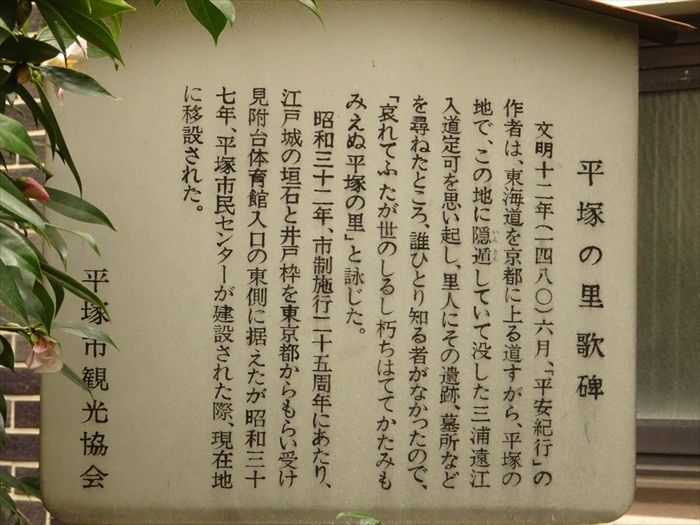 平塚の里歌碑
文明十二年(一四八〇)六月、「平安紀行」の
作者は、東海道を京都に上る道すがら、平塚の
地で、この地に隠遁していて没した三浦遠江
いんとん
入道定可を思い起し、里人にその遺跡、墓所など
を尋ねたところ、誰ひとり知る者がなかったので、
「哀れてふたが世のしるし朽ちはててかたみも
みえぬ平塚の里」と詠じた。
昭和三十二年、市制施行二十五周年にあたり、
江戸城の垣石と井戸枠を東京都からもらい受け
見附台体育館入口の東側に据えたが昭和三十
七年、平塚市民センターが建設された際、現在地
に移設された。
平塚市観光協会